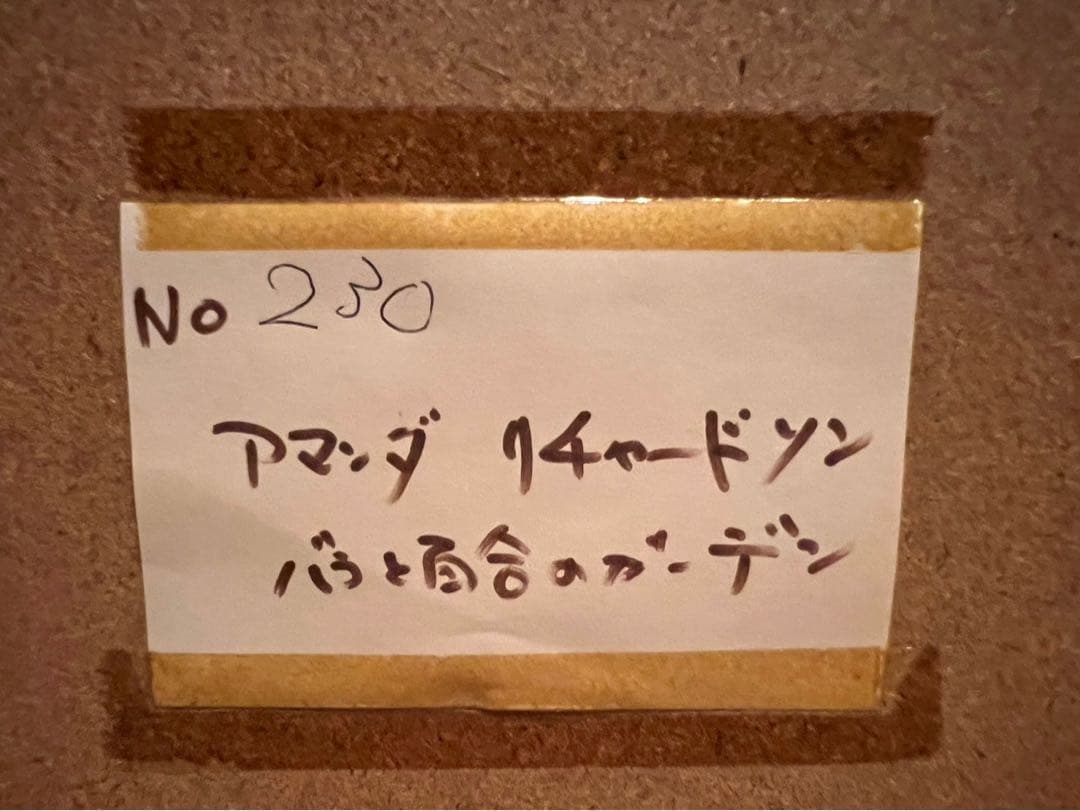 No 230
アマンダ リチャードソン
バラと百合のガーデン